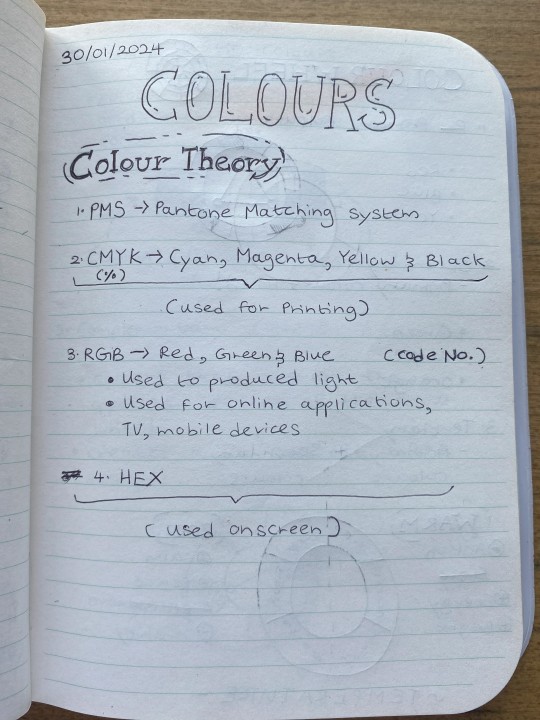 30/01/2024
COLOURS
Colour Theory
1. PMS → Pantone Matching system
2. CMYK → Cyan, Magenta, Yellow & Black
(%)
(used for Printing)
3. RGB → Red, Green & Blue (code No.)
• Used to produced light
• Used for online applications,
TV, mobile devices
4. HEX
(used onscreen)